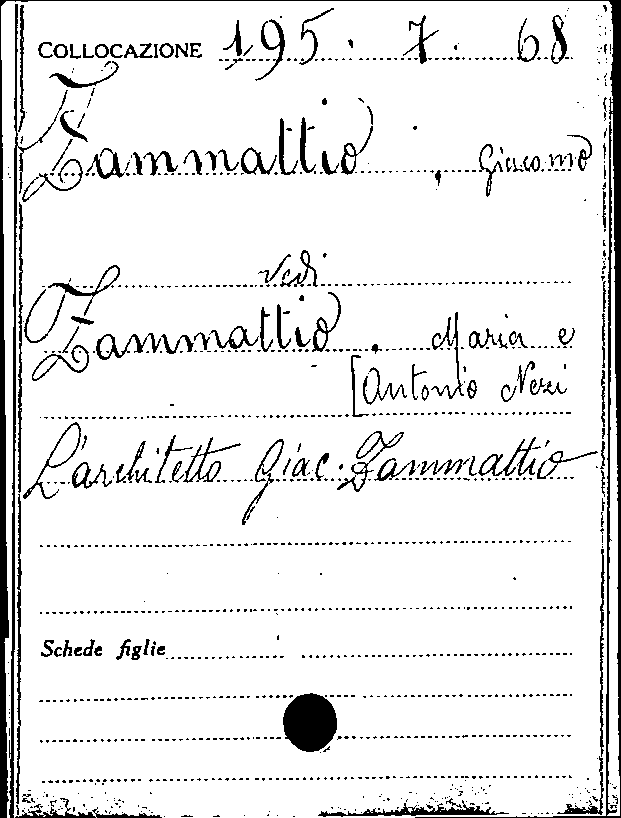 COLLOCAZIONE 195. 7. 68
Zammattio, Giacomo
vedi
Zammattio, Maria e
[Antonio Neri
L'architetto Giac. Zammattio
Schede figlie